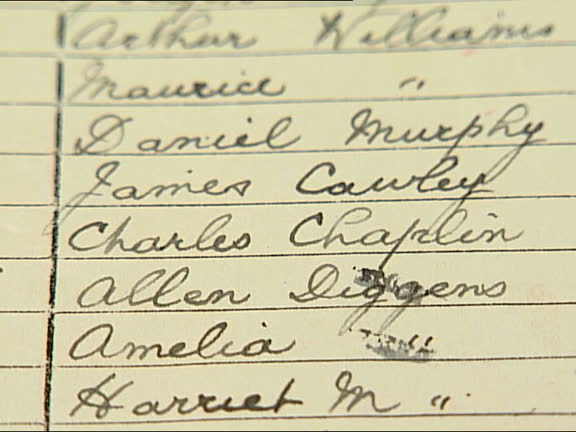 Arthur Williams
Maurice "
Daniel Murphy
James Cawley
Charles Chaplin
Allen Diggens
Amelia "
Harriet M "